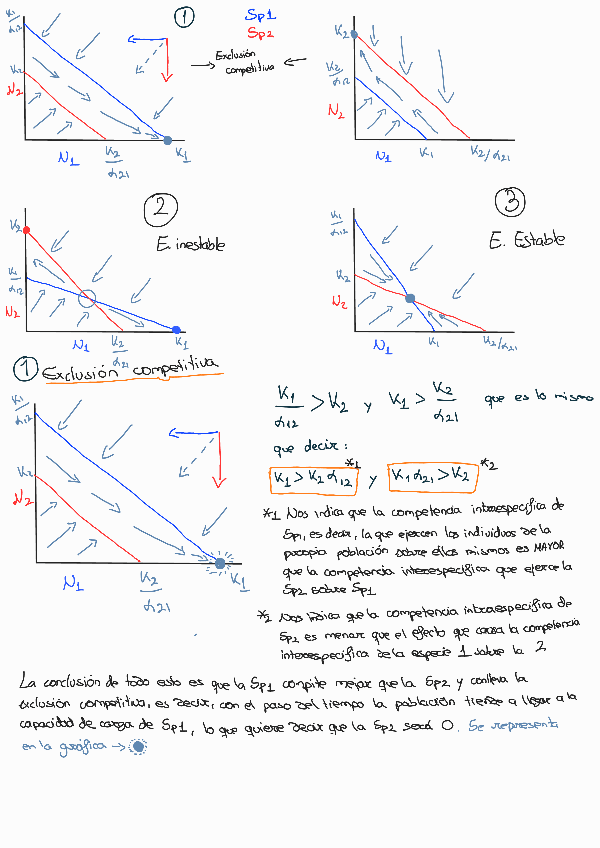 1
Sp1
Sp2
Exclusión
competitiva
K1/α12
K2
N2
N1
K2/α21
K1
K2
K1/α12
N2
N1
K1
K2/α21
2
E. inestable
K2
K1/α12
N2
N1
K2/α21
K1
3
E. Estable
K1/α12
K2
N2
N1
K1
K2/α21
1 Exclusión competitiva
K1/α12
K2
N2
N1
K2/α21
K1
K1/α12 > K2 y K1 > K2/α21 que es lo mismo
que decir:
K1 > K2 α12 *1 y K1 α21 > K2 *2
*1 Nos indica que la competencia intraespecífica de
Sp1, es decir, la que ejercen los individuos de la
propia población sobre ellos mismos es MAYOR
que la competencia interespecífica que ejerce la
Sp2 sobre Sp1
*2 Nos indica que la competencia intraespecífica de
Sp2 es menor que el efecto que causa la competencia
interespecífica de la especie 1 sobre la 2
La conclusión de todo esto es que la Sp1 compite mejor que la Sp2 y conlleva la
exclusión competitiva, es decir, con el paso del tiempo la población tiende a llegar a la
capacidad de carga de Sp1, lo que quiere decir que la Sp2 será 0. Se representa
en la gráfica →